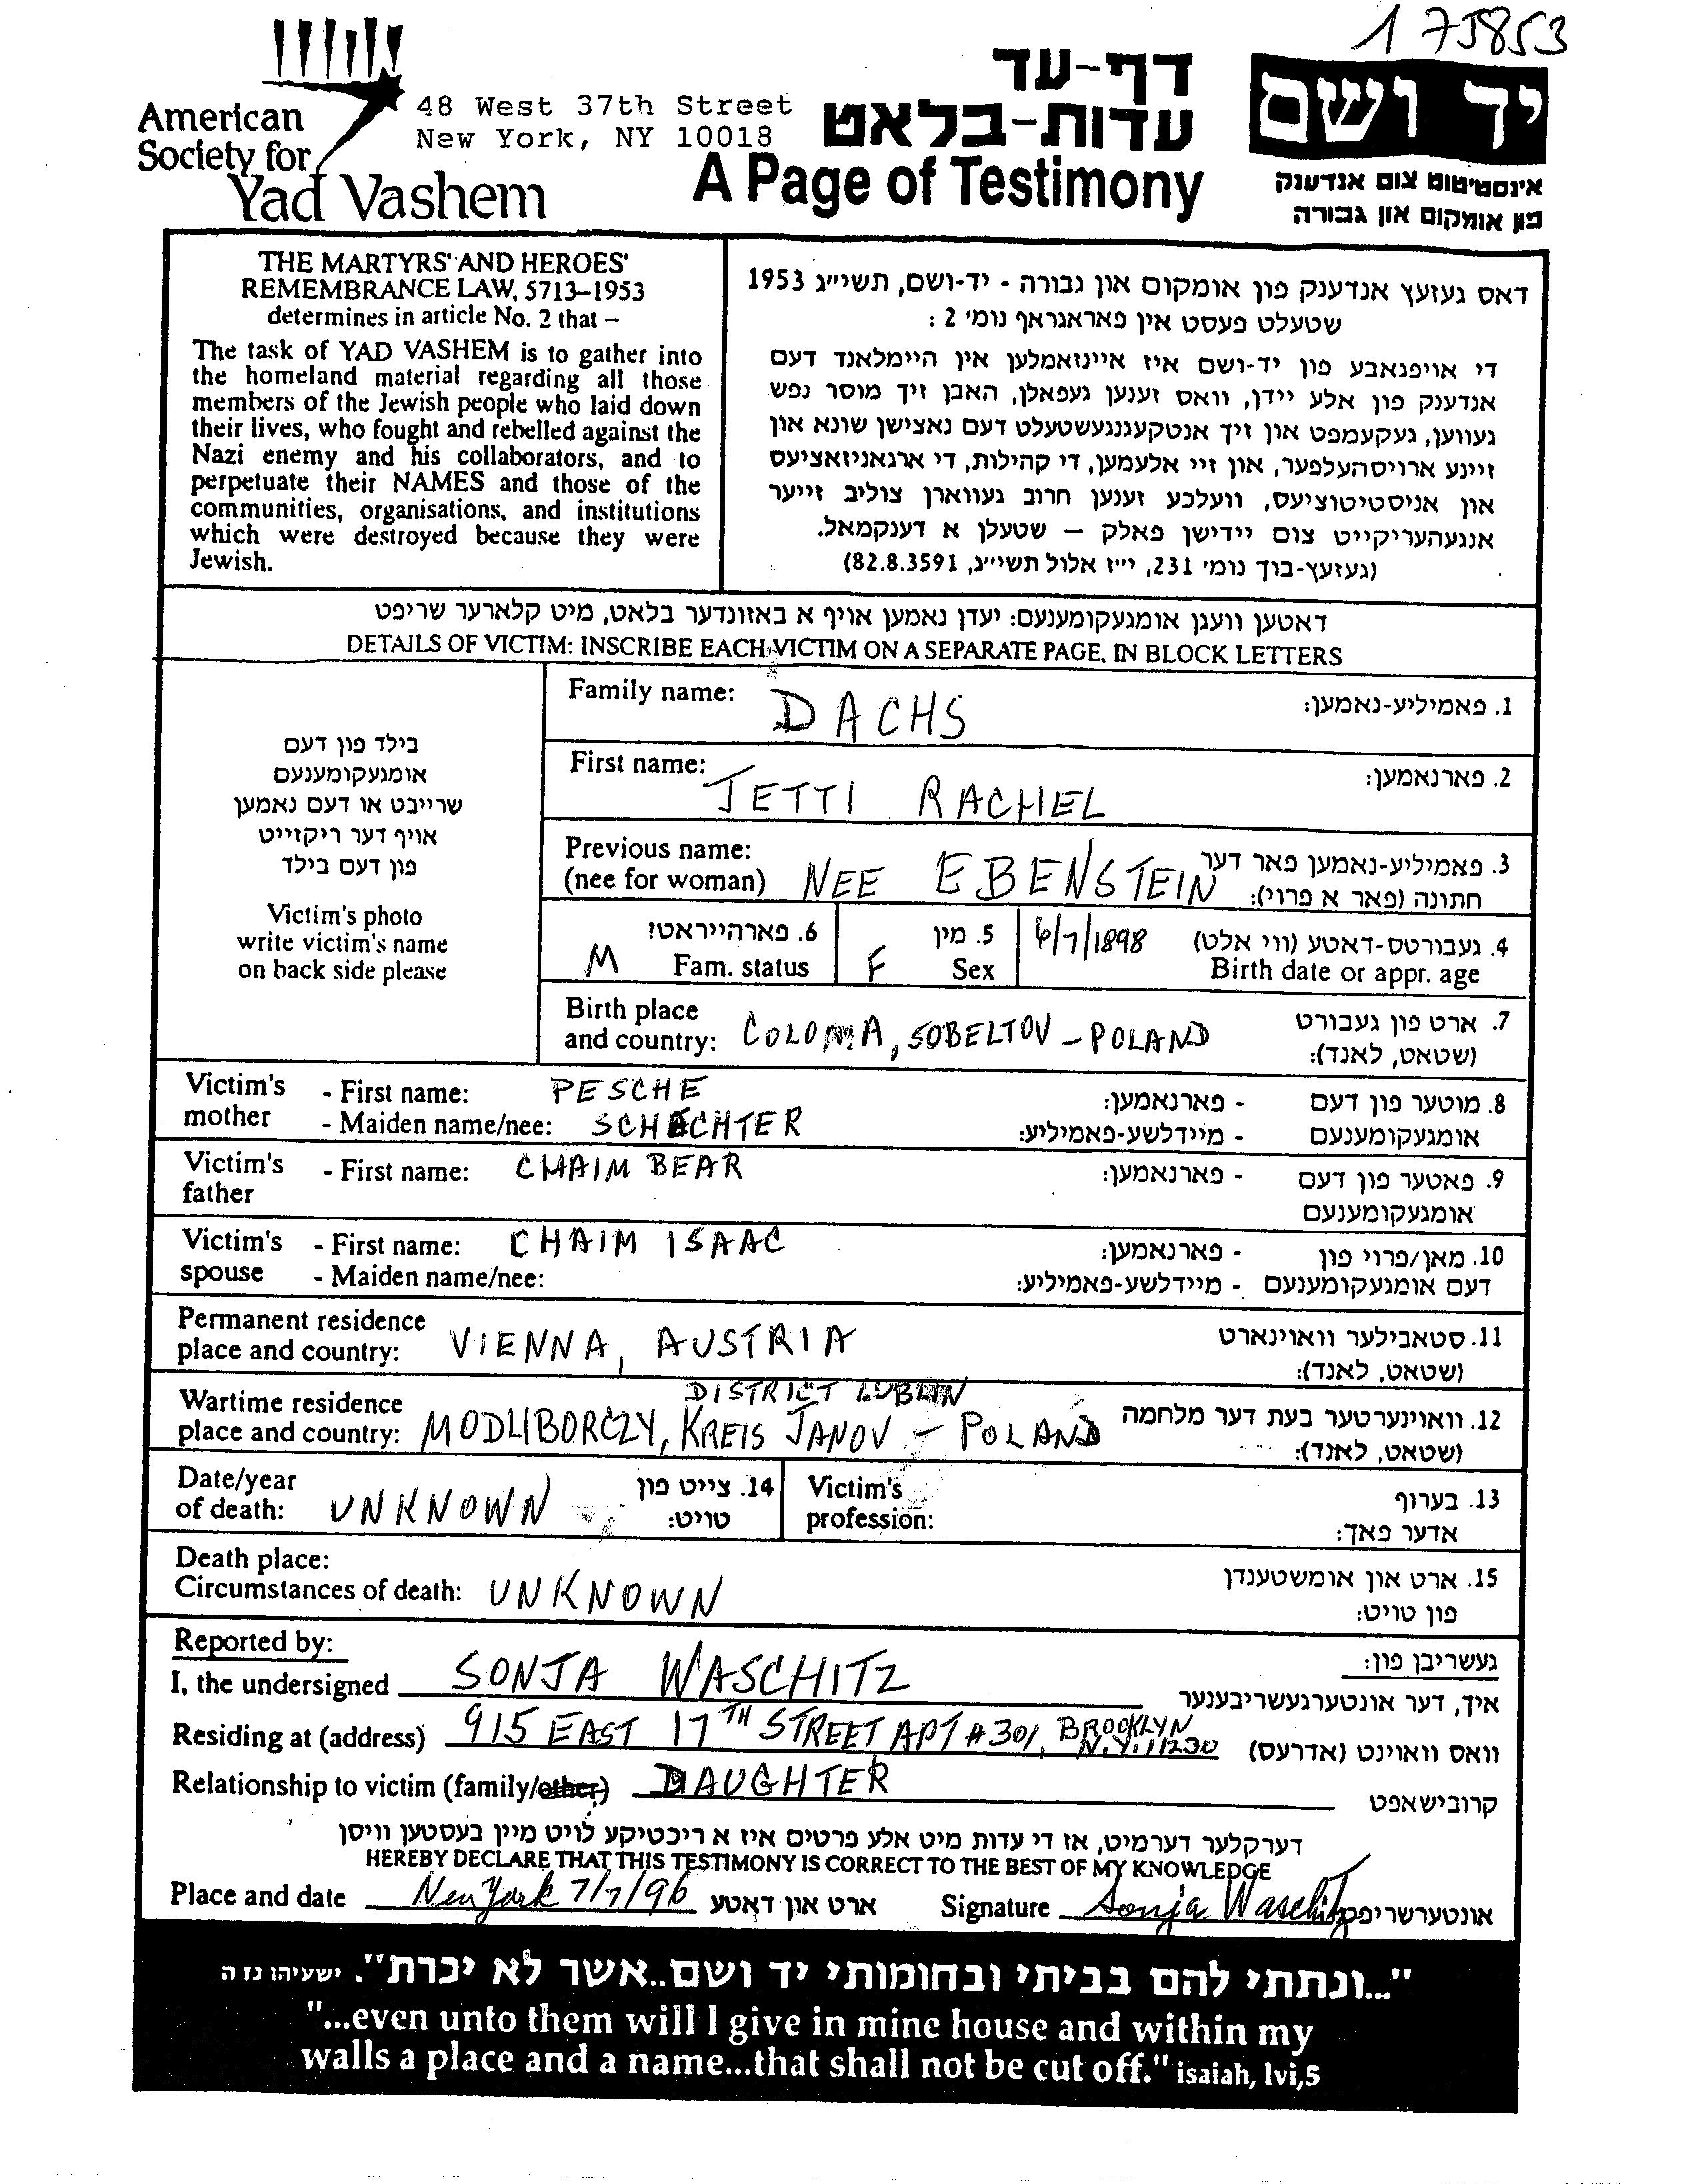 175853
American
Society for
Yad Vashem
48 West 37th Street
New York, NY 10018
דף-עד
עדות-בלאט
A Page of Testimony
יד ושם
אינסטיטוט צום אנדענק
פון אומקום און גבורה
THE MARTYRS' AND HEROES'
REMEMBRANCE LAW, 5713–1953
determines in article No. 2 that –
The task of YAD VASHEM is to gather into
the homeland material regarding all those
members of the Jewish people who laid down
their lives, who fought and rebelled against the
Nazi enemy and his collaborators, and to
perpetuate their NAMES and those of the
communities, organisations, and institutions
which were destroyed because they were
Jewish.
דאס געזעץ אנדענק פון אומקום און גבורה - יד-ושם, תשי״ג 1953
שטעלט פעסט אין פאראגראף נומ׳ 2 :
די אויפגאבע פון יד-ושם איז איינזאמלען אין היימלאנד דעם
אנדענק פון אלע יידן, וואס זענען געפאלן, האבן זיך מוסר נפש
געווען, געקעמפט און זיך אנטקעגנגעשטעלט דעם נאצישן שונא און
זיינע ארויסהעלפער, און זיי אלעמען, די קהילות, די ארגאניזאציעס
און אניסטיטוציעס, וועלכע זענען חרוב געווארן צוליב זייער
אנגעהעריקייט צום יידישן פאלק – שטעלן א דענקמאל.
(געזעץ-בוך נומ׳ 231, י״ז אלול תשי״ג, 82.8.3591)
דאטען וועגן אומגעקומענעם: יעדן נאמען אויף א באזונדער בלאט, מיט קלארער שריפט
DETAILS OF VICTIM: INSCRIBE EACH VICTIM ON A SEPARATE PAGE, IN BLOCK LETTERS
בילד פון דעם
אומגעקומענעם
שרייבט או דעם נאמען
אויף דער ריקזייט
פון דעם בילד
Victim's photo
write victim's name
on back side please
Family name: DACHS 1. פאמיליע-נאמען:
First name: JETTI RACHEL 2. פארנאמען:
Previous name: 3. פאמיליע-נאמען פאר דער
(nee for woman) NEE EBENSTEIN חתונה (פאר א פרוי):
6. פארהייראט? 5. מין 6/7/1898 4. געבורטס-דאטע (ווי אלט)
M Fam. status F Sex Birth date or appr. age
Birth place 7. ארט פון געבורט
and country: COLOMA, SOBELTOV – POLAND (שטאט, לאנד):
Victim's - First name: PESCHE - פארנאמען: 8. מוטער פון דעם
mother - Maiden name/nee: SCHACHTER - מיידלשע-פאמיליע: אומגעקומענעם
Victim's - First name: CHAIM BEAR - פארנאמען: 9. פאטער פון דעם
father אומגעקומענעם
Victim's - First name: CHAIM ISAAC - פארנאמען: 10. מאן/פרוי פון
spouse - Maiden name/nee: - מיידלשע-פאמיליע: דעם אומגעקומענעם
Permanent residence 11. סטאבילער וואוינארט
place and country: VIENNA, AUSTRIA (שטאט, לאנד):
DISTRICT LUBLIN
Wartime residence 12. וואוינערטער בעת דער מלחמה
place and country: MODLIBORCZY, KREIS JANOV – POLAND (שטאט, לאנד):
Date/year 14. צייט פון Victim's 13. בערוף
of death: UNKNOWN טויט: profession: אדער פאך:
Death place: 15. ארט און אומשטענדן
Circumstances of death: UNKNOWN פון טויט:
Reported by: געשריבן פון:
I, the undersigned SONJA WASCHITZ איך, דער אונטערגעשריבענער
Residing at (address) 915 EAST 17TH STREET APT #301, BROOKLYN N.Y. 11230 וואס וואוינט (אדרעס)
Relationship to victim (family/other) DAUGHTER קרובישאפט
דערקלער דערמיט, אז די עדות מיט אלע פרטים איז א ריכטיקע לויט מיין בעסטען וויסן
HEREBY DECLARE THAT THIS TESTIMONY IS CORRECT TO THE BEST OF MY KNOWLEDGE
Place and date New York 7/7/96 ארט און דאטע Signature Sonja Waschitz אונטערשריפט
"...ונתתי להם בביתי ובחומותי יד ושם..אשר לא יכרת". ישעיהו נו ה
"...even unto them will I give in mine house and within my
walls a place and a name...that shall not be cut off." isaiah, lvi,5